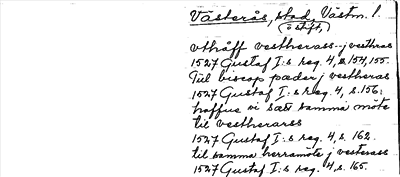 Västerås, stad, Västm. l.
o. stift,
vthåff vestherass j vesthras
1527 Gustaf I:s reg. 4, s. 154, 155.
Till biscop pæder j vestheras
1527 Gustaf I:s reg. 4, s. 156:
haffue vi satt samma möte
til vestherarss
1527 Gustaf I:s reg. 4, s. 162.
til samma herramöte j vesterass
1527 Gustaf I:s reg. 4, s. 165.